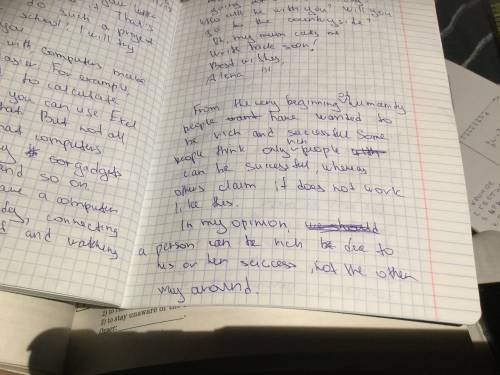 do such a project
school! I will try
with computers make
easier. For example,
to calculate
you can use Exel
that. But not all
that computers
or gadgets
and so on.
have a computer
day, connecting
and watching
who will be with you? Will you
go to the countryside?
Oh, my mum calls me
Write back soon!
Best wishes,
Alena
From the very beginning of humanity
people have wanted to
be rich and successful Some
people think only rich people
can be successful, whereas
others claim it does not work
like this.
In my opinion,
a person can be rich due to
his or her success, not the other
way around.
3) to stay unaware of the